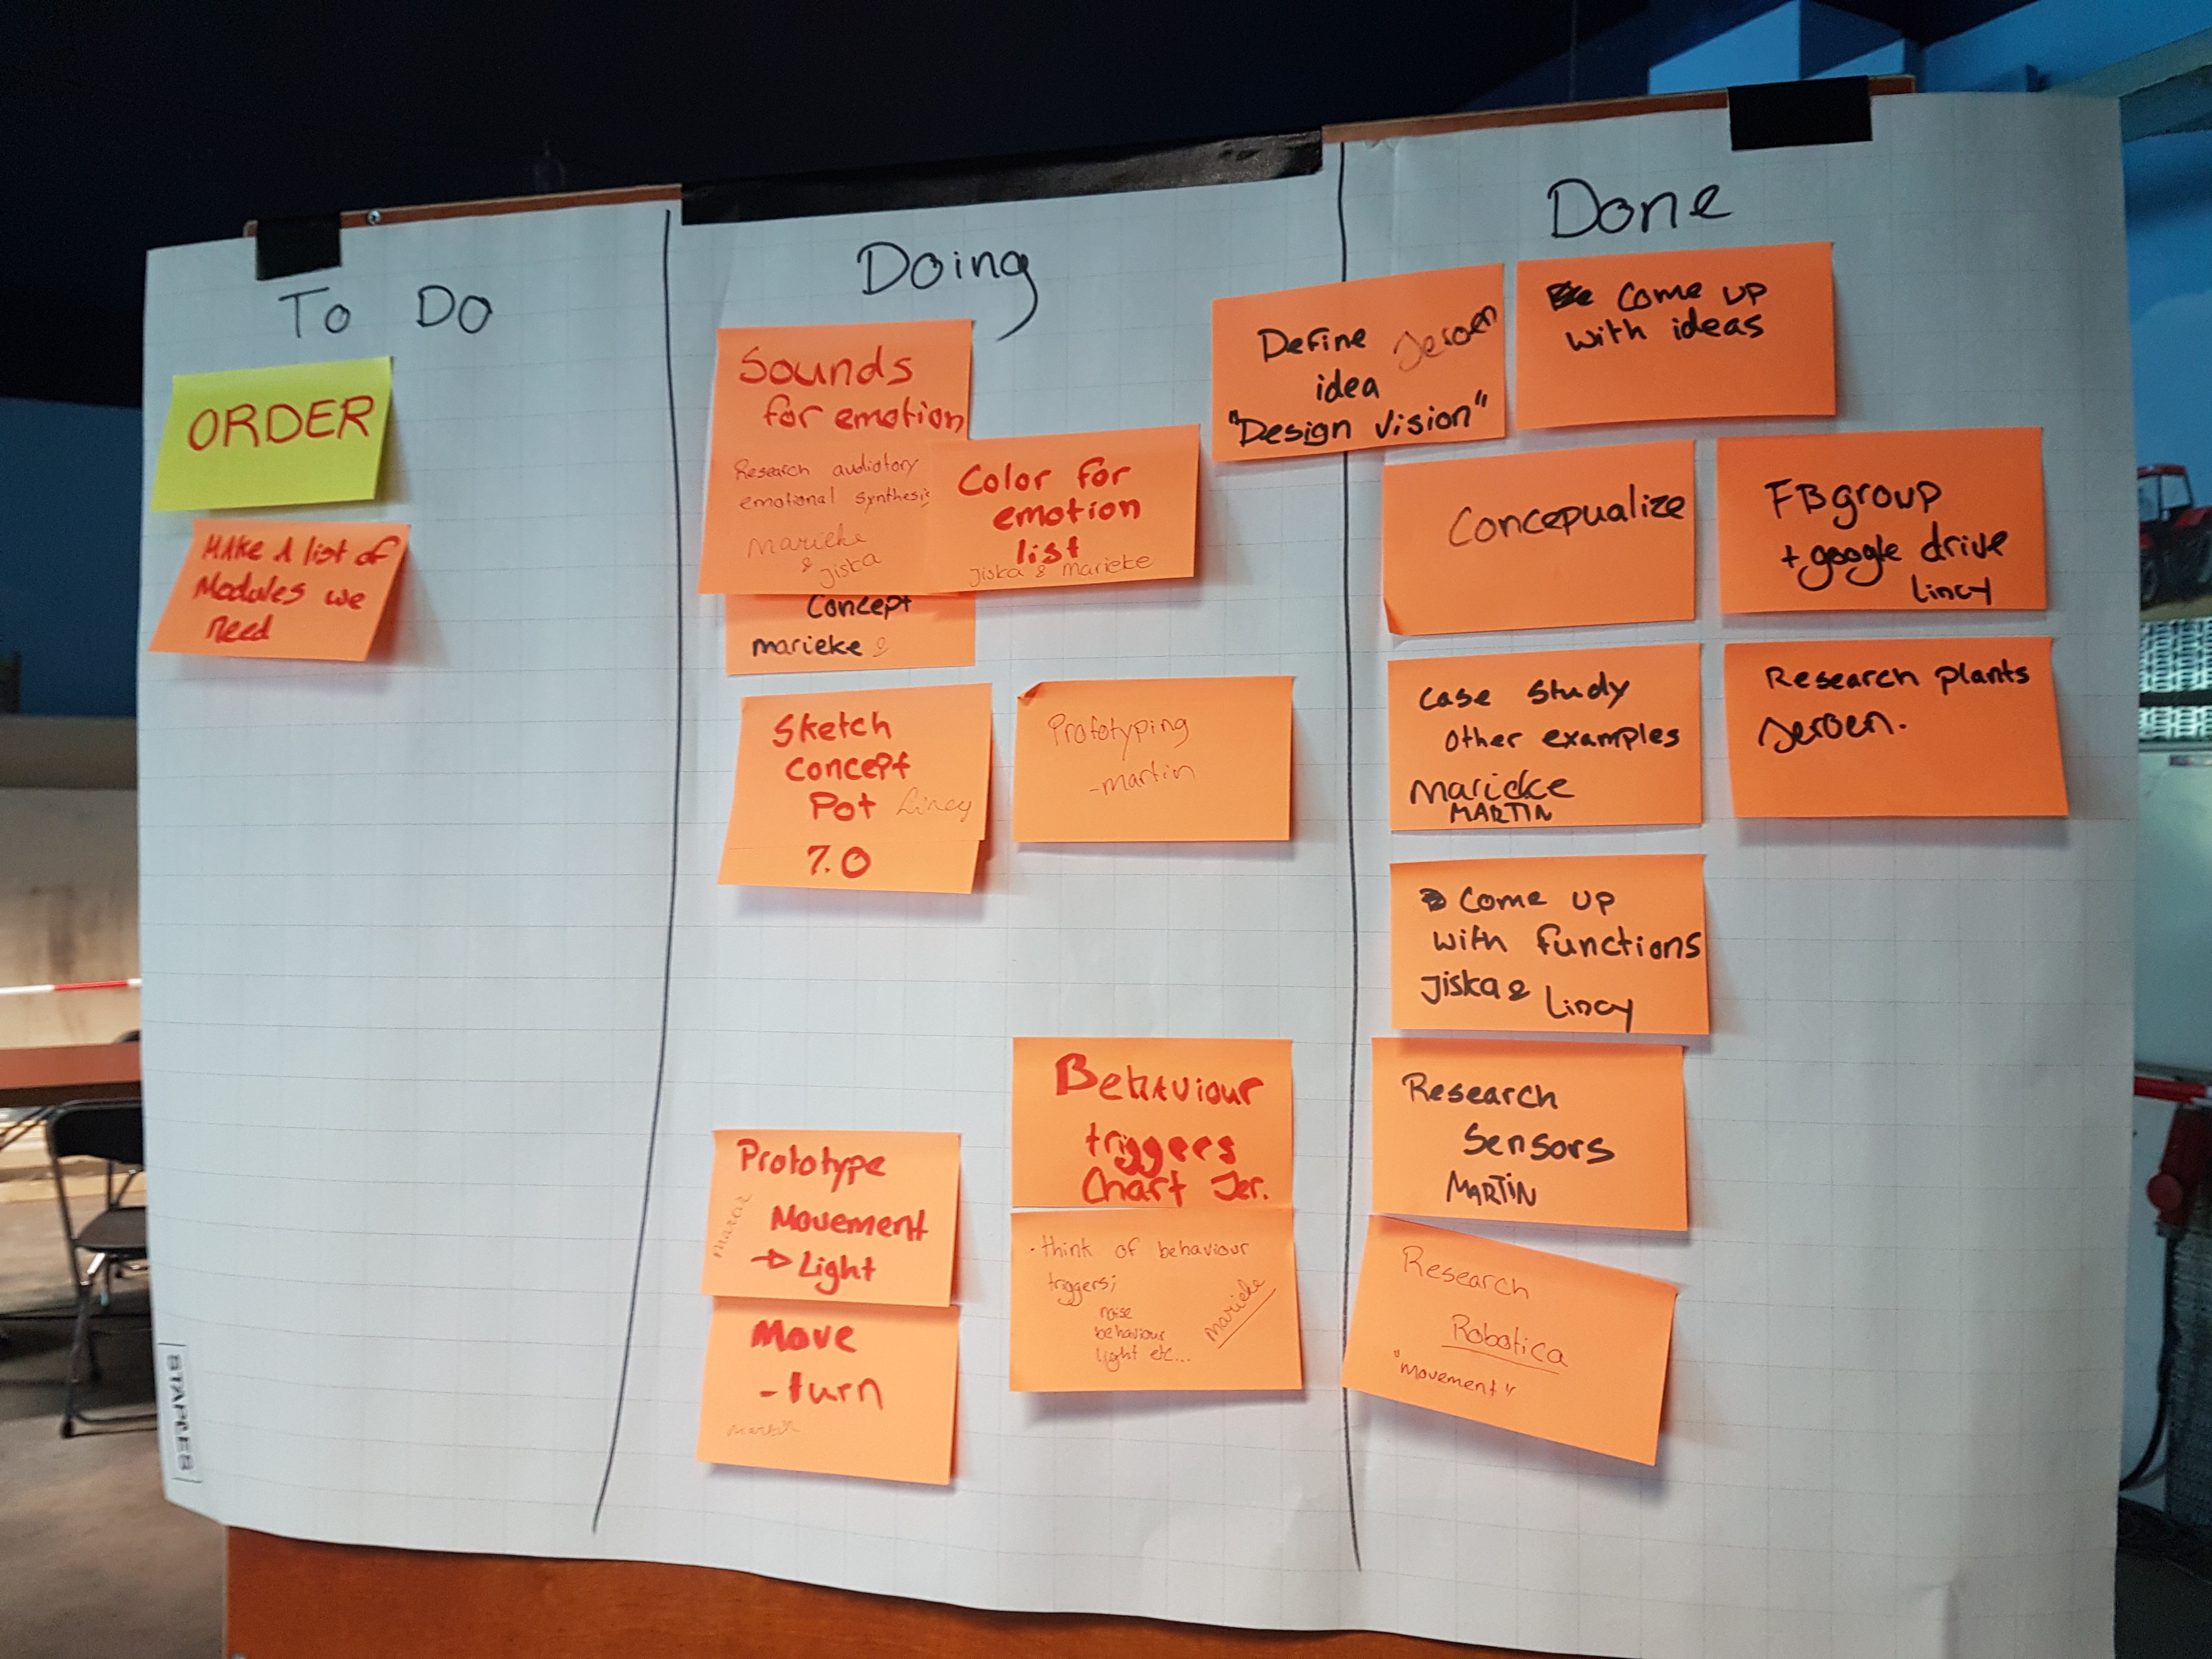 To Do
ORDER
MAKE A list of
Modules we
need
Doing
Sounds
for emotion
Research audiotory
emotional synthesis
Marieke
& Jiska
Color for
emotion
list
Jiska & Marieke
Concept
marieke &
Sketch
Concept
Pot Lincy
7.0
Prototyping
-martin
Behaviour
triggers
Chart Jer.
• think of behaviour
triggers;
noise
behaviour
light etc...
Marieke
Prototype
Movement
→ Light
Move
- turn
martin
Done
Define Jeroen
idea
"Design Vision"
Come up
with ideas
Concepualize
FB group
+ google drive
Lincy
Case Study
Other examples
Marieke
MARTIN
Research plants
Jeroen.
Come up
with functions
Jiska &
Lincy
Research
Sensors
MARTIN
Research
Robotica
"Movement"
STAPLES